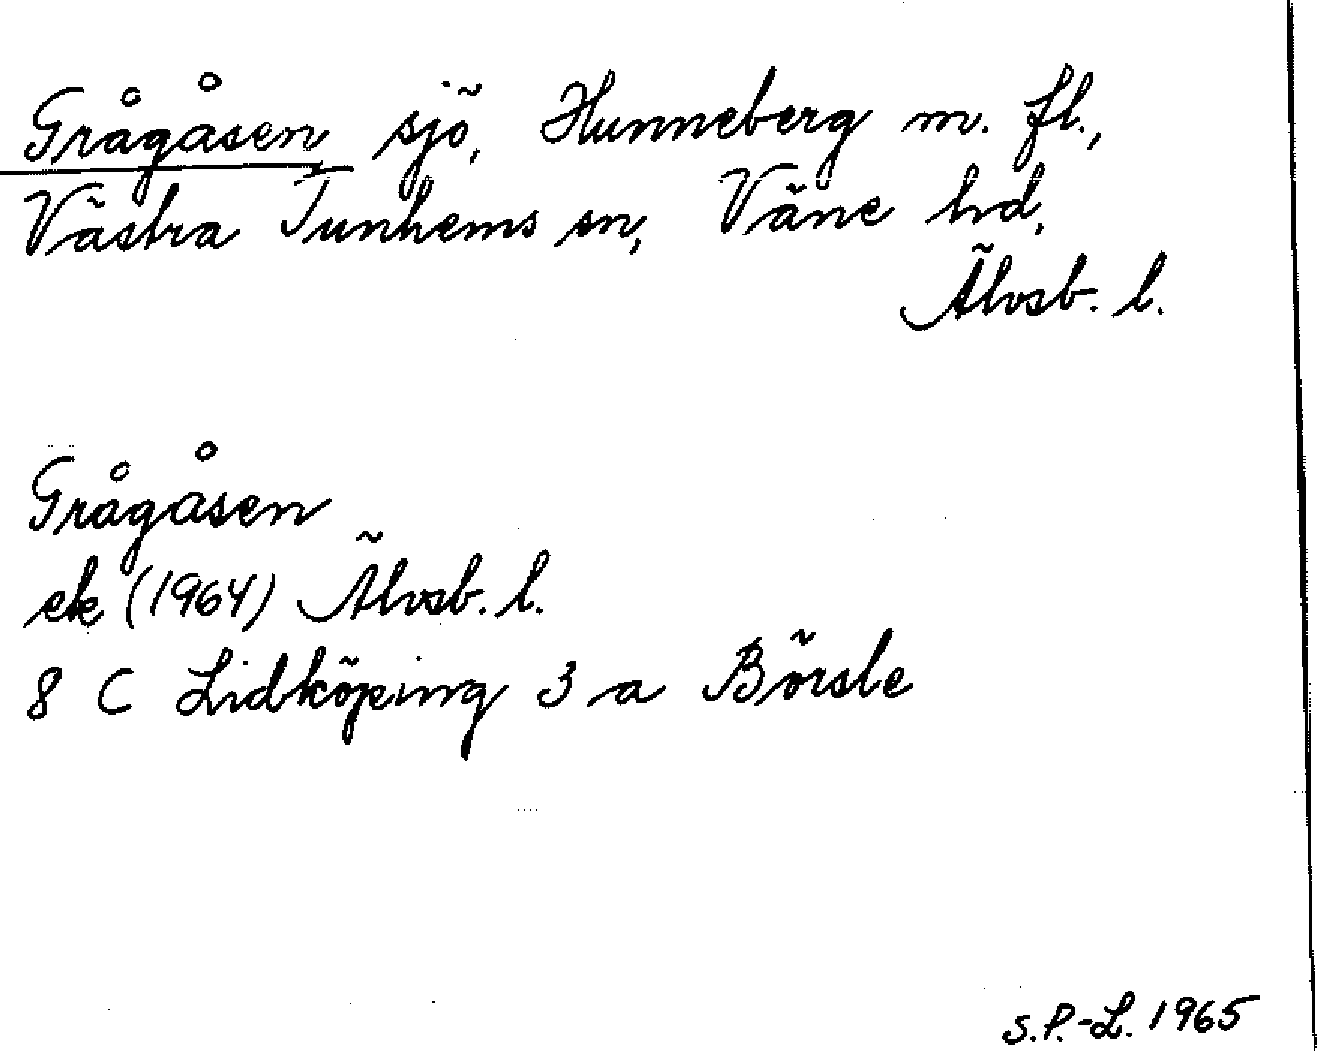 Grågåsen sjö, Hunneberg m. fl.,
Västra Tunhems sn, Väne hd,
Älvsb. l.
Grågåsen
ek (1964) Älvsb. l.
8 C Lidköping 3 a Börsle
S.P.-L. 1965